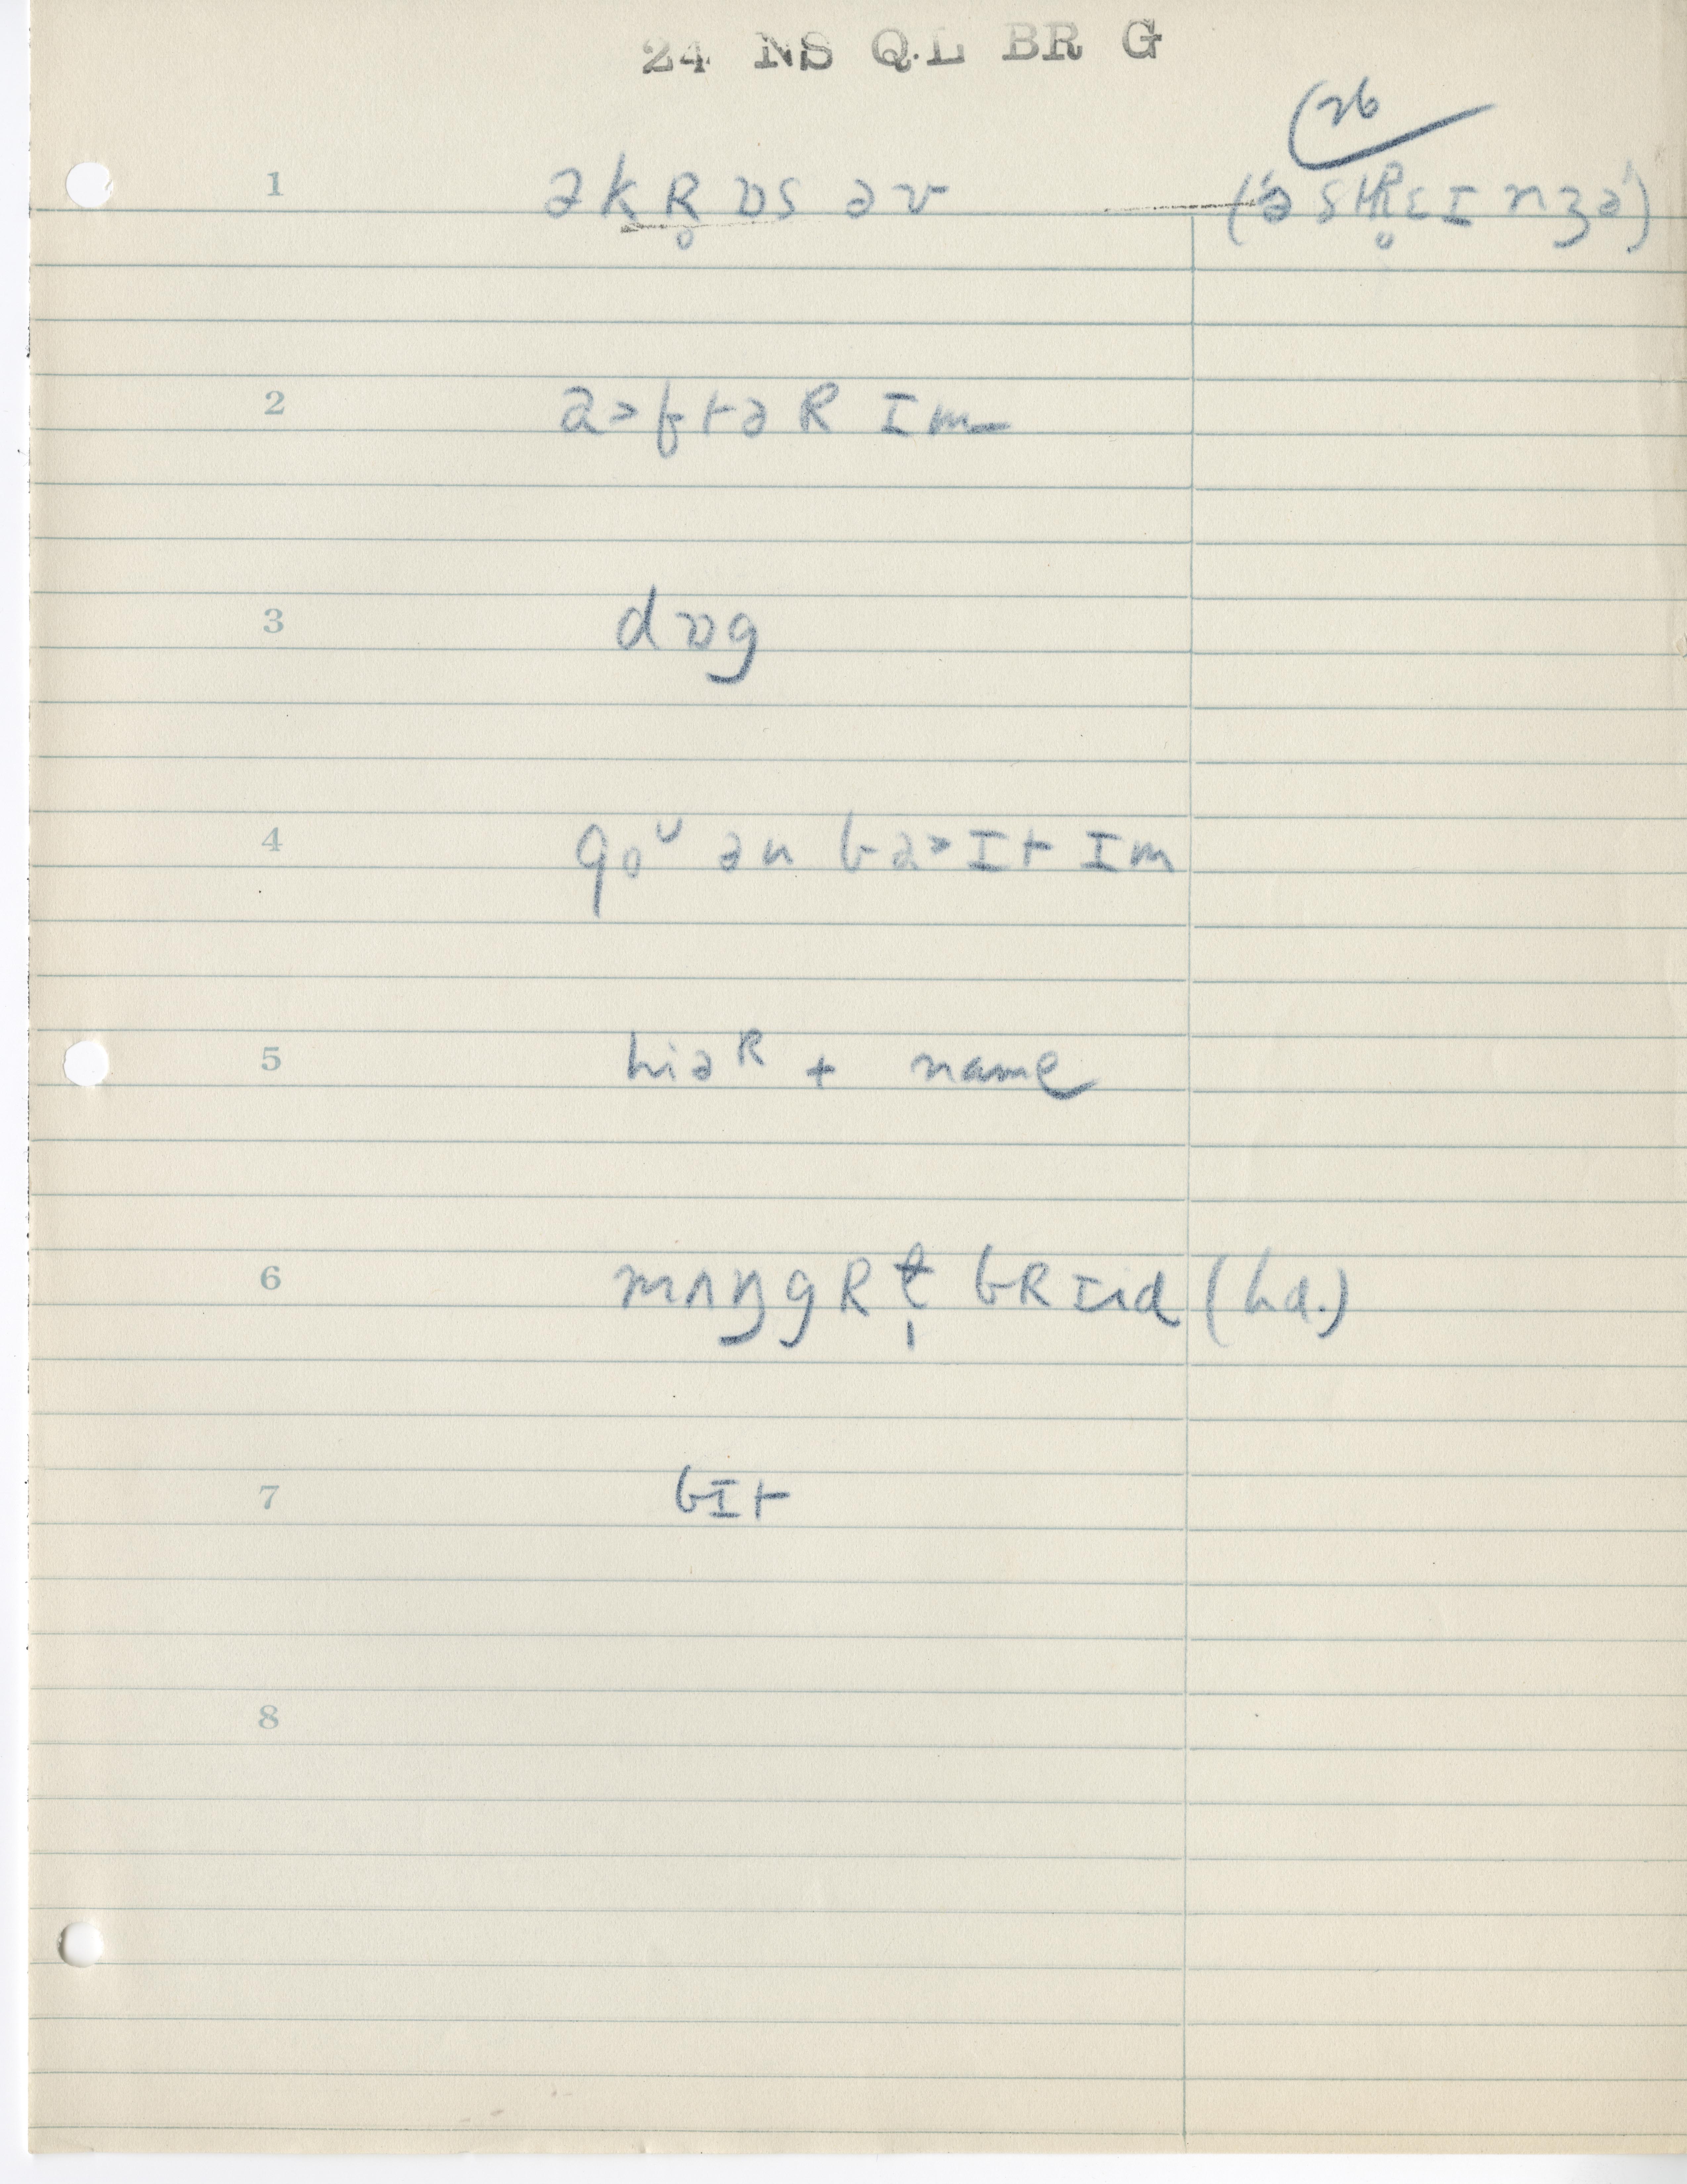 24 NS Q.L BR G
(26
1 əkR̥ɒs əv ('ə stR̥ɛɪnʒə')
2 a>ftəR ɪm
3 dɒg
4 goᶷ ən ba>ɪt ɪm
5 hiəᴿ + name
6 mʌŋgRɫ̩ bRɪnd (hd.)
7 bɪt
8